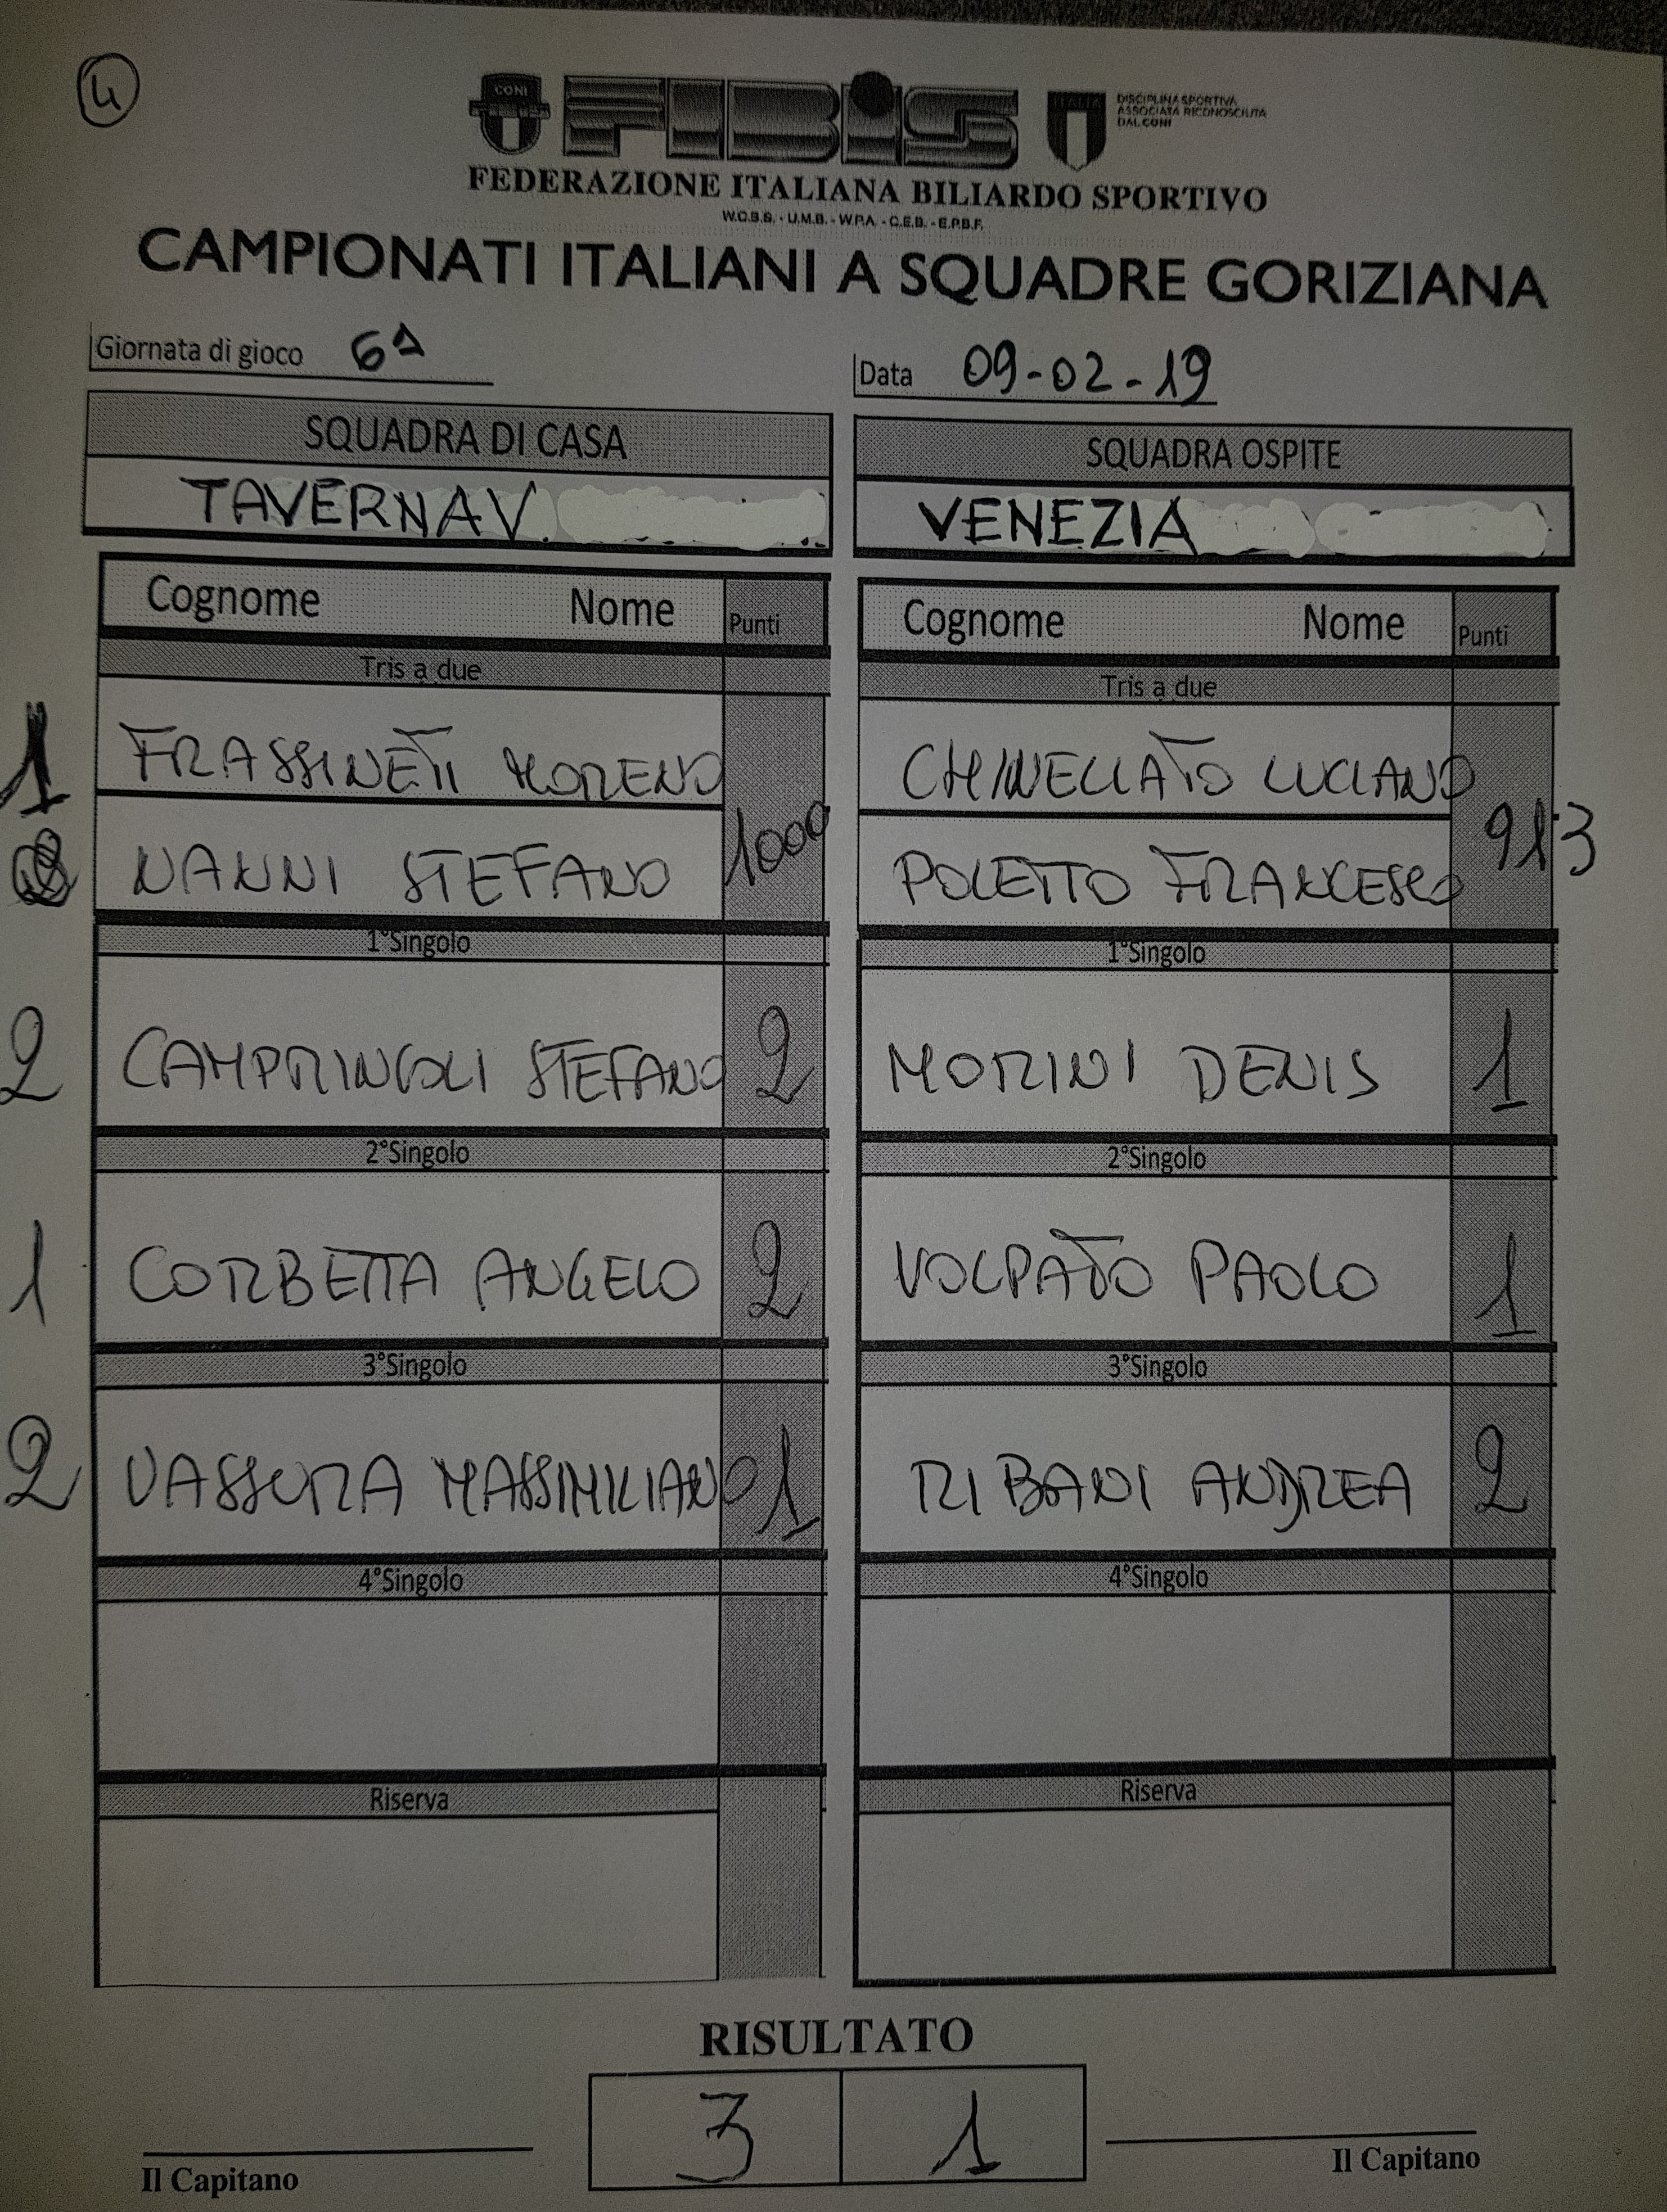 4
CONI
FIBiS
ITALIA
DISCIPLINA SPORTIVA
ASSOCIATA RICONOSCIUTA
DAL CONI
FEDERAZIONE ITALIANA BILIARDO SPORTIVO
W.C.B.S. - U.M.B. - W.P.A. - C.E.B. - E.P.B.F.
CAMPIONATI ITALIANI A SQUADRE GORIZIANA
Giornata di gioco 6ª
Data 09-02-19
SQUADRA DI CASA
TAVERNA V.
SQUADRA OSPITE
VENEZIA
Cognome Nome Punti
Cognome Nome Punti
Tris a due
Tris a due
1 FRASSINETI MORENO
CHINELLATO LUCIANO
1000
913
NANNI STEFANO
POLETTO FRANCESCO
1°Singolo
1°Singolo
2 CAMPRINCOLI STEFANO 2
MORINI DENIS 1
2°Singolo
2°Singolo
1 CORBETTA ANGELO 2
VOLPATO PAOLO 1
3°Singolo
3°Singolo
2 VASSURA MASSIMILIANO 1
RIBANI ANDREA 2
4°Singolo
4°Singolo
Riserva
Riserva
RISULTATO
3 1
Il Capitano
Il Capitano